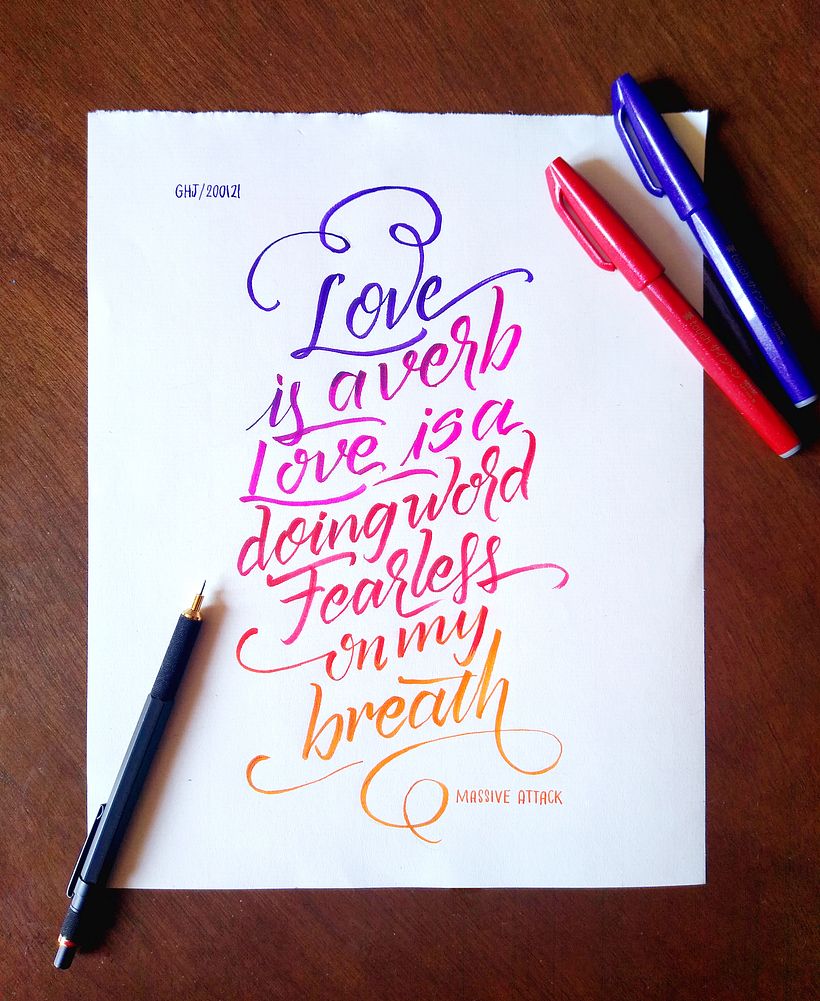 GHJ/200121
Love
is a verb
Love is a
doing word
Fearless
on my
breath
MASSIVE ATTACK